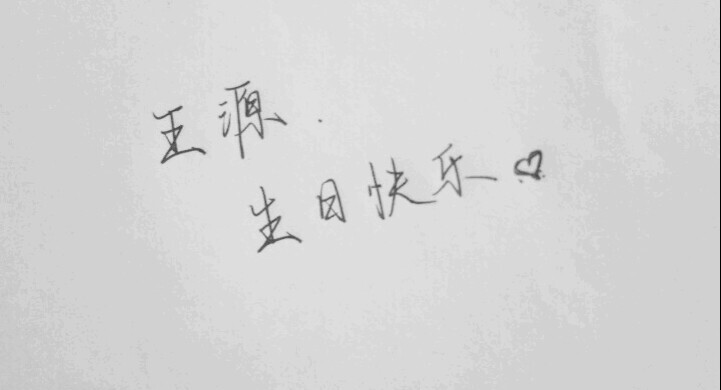 王源.
生日快乐♡